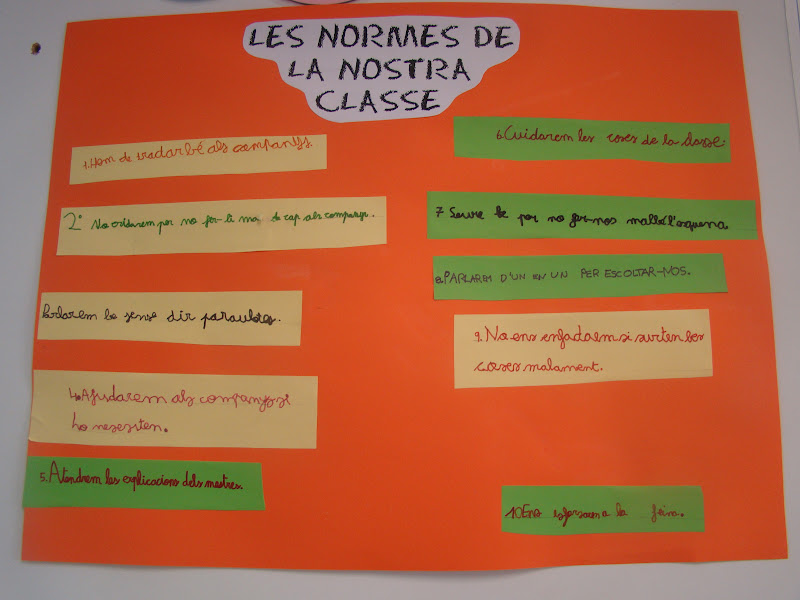 LES NORMES DE
LA NOSTRA
CLASSE
1.Hem de tradar bé als companys.
2º No cridarem per no fer-li mal de cap als companys.
Parlarem be sense dir paraulotes.
4.Ajudarem als companys si
ho nesesiten.
5.Atendrem les explicacions dels mestres.
6.Cuidarem les coses de la classe.
7 Seure be per no fer-nos mal a l'esquena.
8.PARLAREM D'UN EN UN PER ESCOLTAR-NOS.
9.No ens enfadarem si surten les
coses malament.
10Ens esforsarem a la feina.